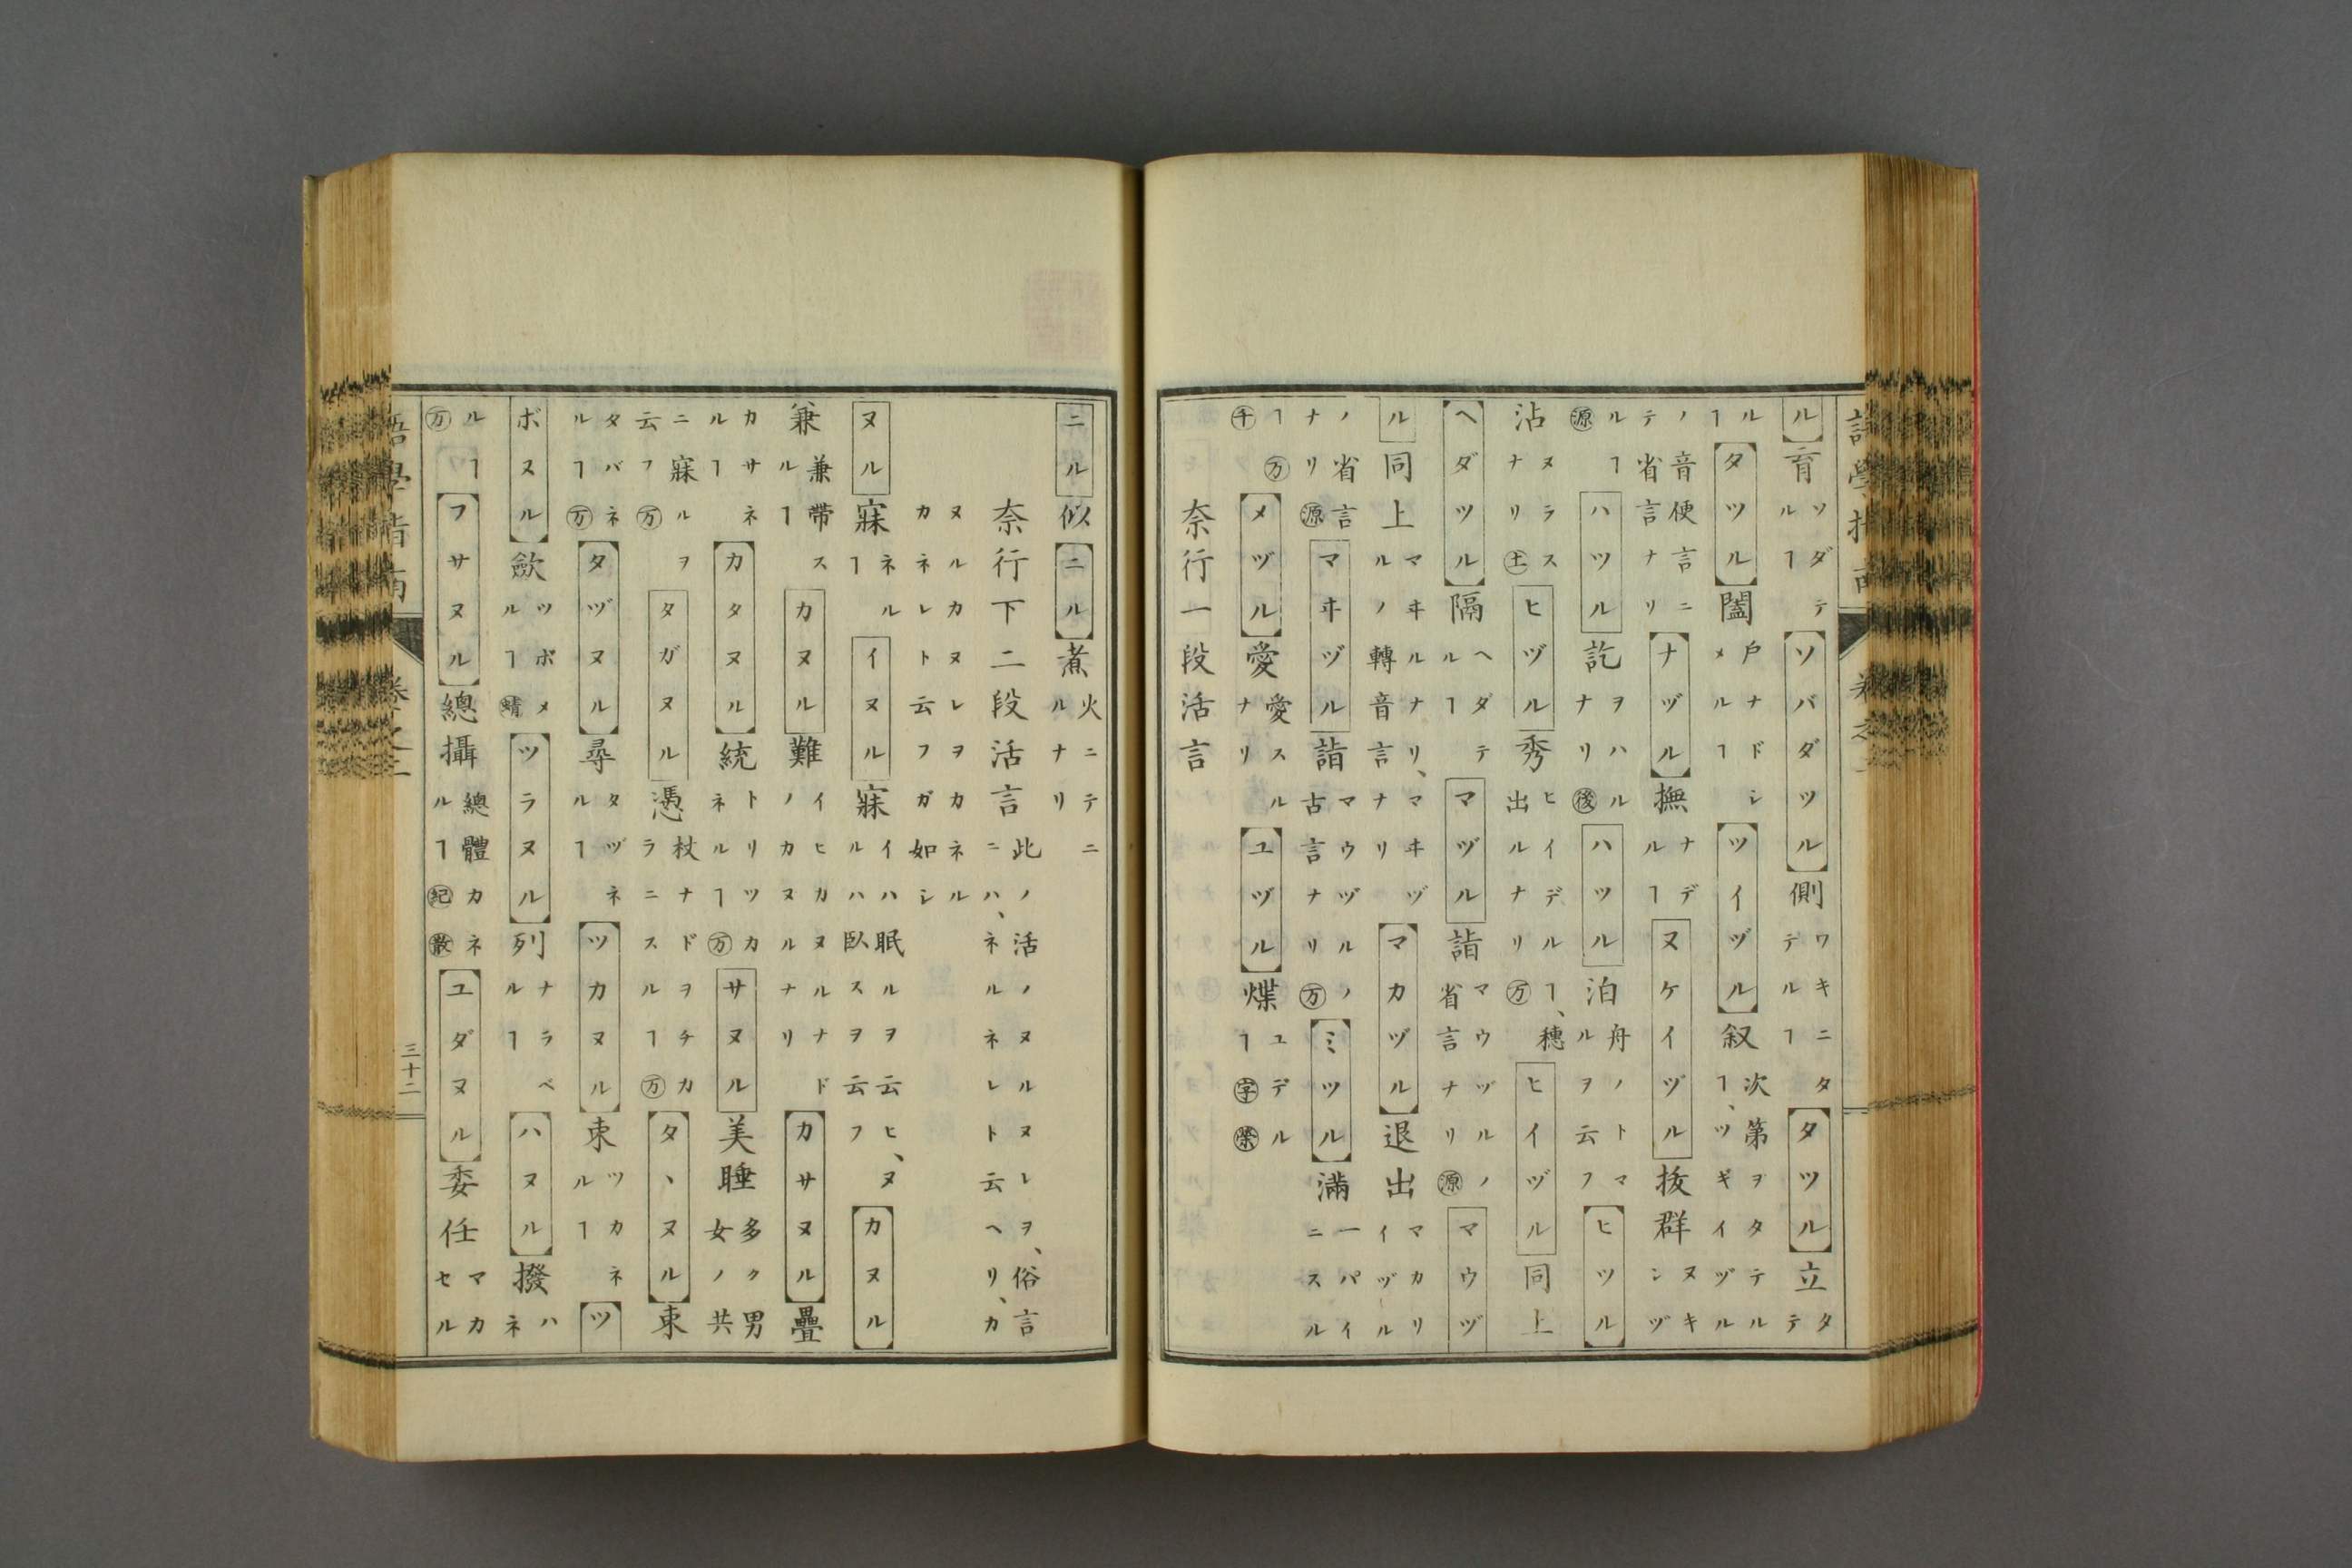 語學指南 卷之
ル育ソダテルヿソバダツル側ワキニタテルヿタツル立タテ
ルヿタツル闔戸ナドシメルヿツイヅル叙次第ヲタテルヿ、ツギイヅル
ノ音便言ニテ省言ナリナヅル撫ナデルヿヌケイヅル抜群ヌキンヅ
ルヿ源ハツル訖ヲハルナリ後ハツル泊舟ノトマルヲ云フヒツル
沾ヌラスナリ土ヒヅル秀ヒイデルヿ、穗出ルナリ万ヒイヅル同上
ヘダツル隔ヘダテルヿマヅル詣マウヅルノ省言ナリ源マウヅ
ル同上マヰルナリ、マヰヅルノ轉音言ナリマカヅル退出マカリイヅル
ノ省言ナリ源マヰヅル詣マウヅルノ古言ナリ万ミツル滿一パイニスル
ヿ万千メヅル愛愛スルナリユヅル煠ユデルヿ字榮
奈行一段活言
ニル似ニル煮火ニテニルナリ
奈行下二段活言此ノ活ノヌルヌレヲ、俗言ニハ、ネルネレト云ヘリ、カ
ヌルカヌレヲカネルカネレト云フガ如シ
ヌル寐ネルヿイヌル寐イハ眠ルヲ云ヒ、ヌルハ臥スヲ云フカヌル
兼兼帶スルヿカヌル難イヒカヌルナドノカヌルナリカサヌル疊
カサネルヿカタヌル統トリツカネルヿ万サヌル美睡多ク男女ノ共
ニ寐ルヲ云フ万タガヌル憑杖ナドヲチカラニスルヿ万タヽヌル束
タバネルヿ万タヅヌル尋タヅネルヿツカヌル束ツカネルヿツ
ボヌル歛ツボメルヿ蜻ツラヌル列ナラベルヿハヌル撥ハネ
ルヿ万フサヌル總攝總體カネルヿ紀散ユダヌル委任マカセル
語學指南 卷之三 三十二